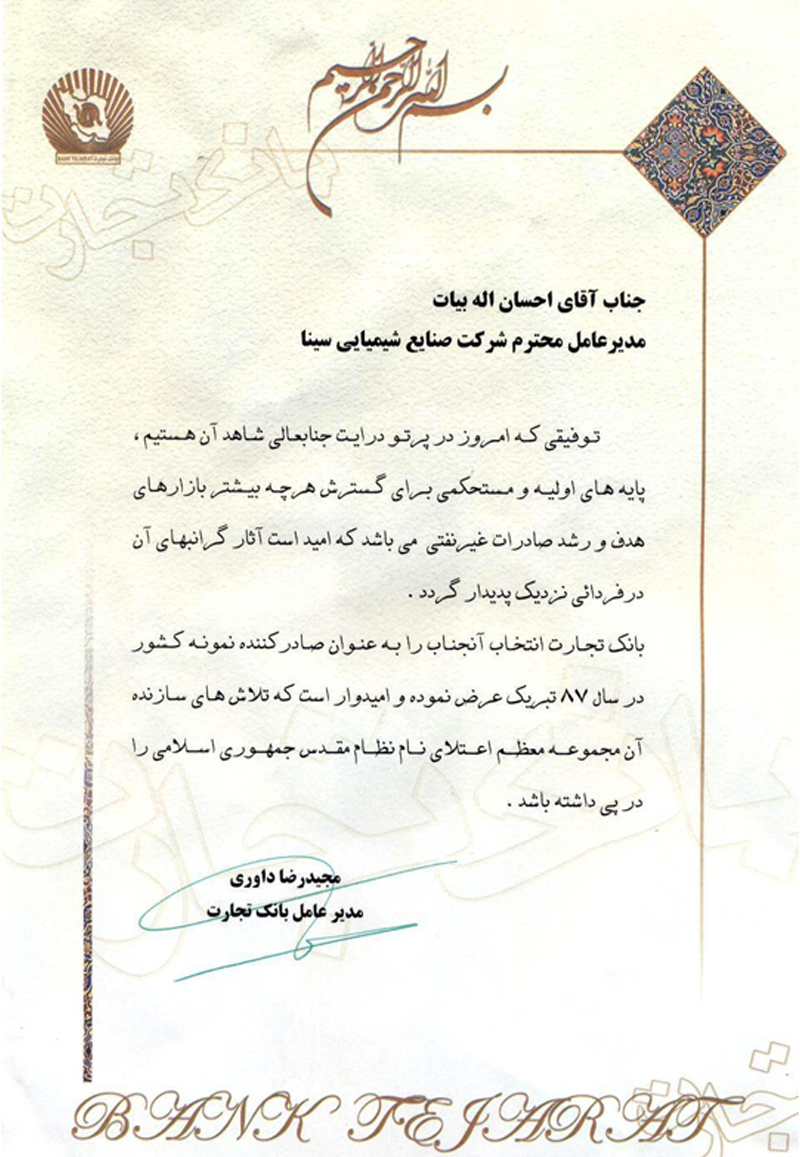 بسم الله الرحمن الرحیم
جناب آقای احسان اله بیات
مدیرعامل محترم شرکت صنایع شیمیایی سینا
توفیقی که امروز در پرتو درایت جنابعالی شاهد آن هستیم ،
پایه های اولیه و مستحکمی برای گسترش هرچه بیشتر بازارهای
هدف و رشد صادرات غیرنفتی می باشد که امید است آثار گرانبهای آن
درفردائی نزدیک پدیدار گردد .
بانک تجارت انتخاب آنجناب را به عنوان صادرکننده نمونه کشور
در سال ۸۷ تبریک عرض نموده و امیدوار است که تلاش های سازنده
آن مجموعه معظم اعتلای نام نظام مقدس جمهوری اسلامی را
در پی داشته باشد .
مجیدرضا داوری
مدیر عامل بانک تجارت
BANK TEJARAT